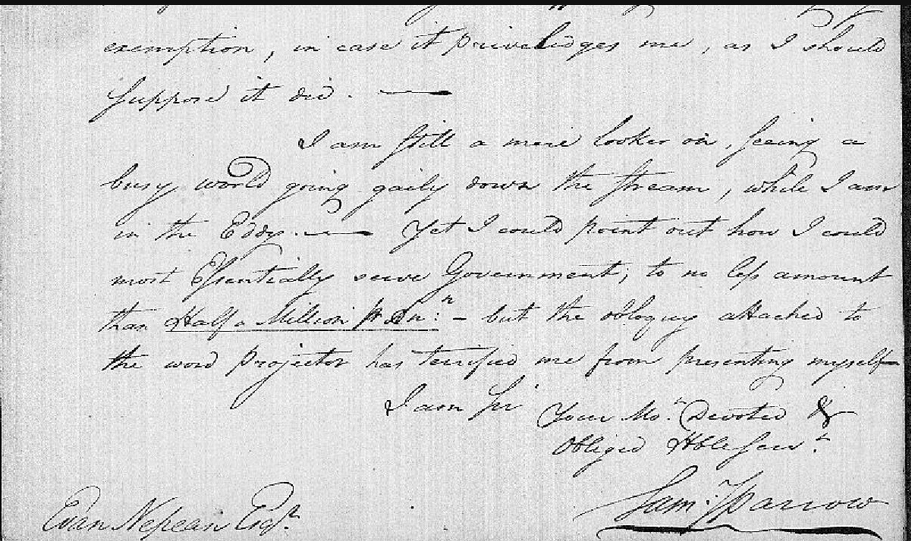 exemption, in case it priveledges me, as I should
suppose it did. —
I am still a mere looker on, seeing a
busy world going gaily down the stream, while I am
in the Eddy. — Yet I could point out how I could
most Essentially serve Government, to no less amount
than Half a Million pr. Ann: – but the obloquy attached to
the word projector has terrified me from presenting myself
I am Sir Your Mot. Devoted &
Obliged Hble Servt.
Saml. Sparrow
Evan Nepean Esqr.